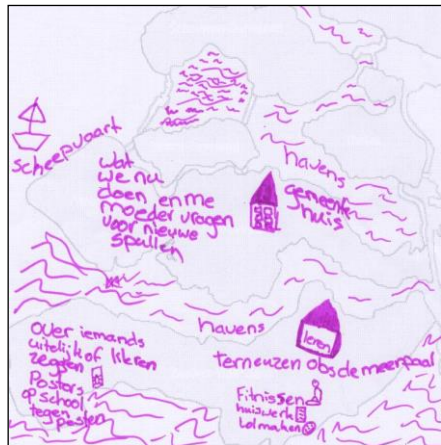 scheepvaart
havens
wat
we nu
doen en me
moeder vragen
voor nieuwe
spullen
gemeente
huis
havens
leren
terneuzen obs de meerpaal
over iemands
uiterlijk of kleren
zeggen
Posters
op school
tegen
pesten
Fitnissen
huiswerk